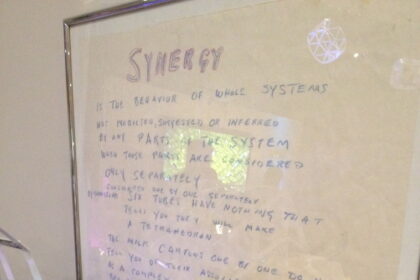 SYNERGY
IS THE BEHAVIOR OF WHOLE SYSTEMS
NOT PREDICTED, SUGGESTED OR INFERRED
BY ANY PARTS OF THE SYSTEM
WHEN THOSE PARTS ARE CONSIDERED
ONLY SEPARATELY
CONSIDERED ONE BY ONE SEPARATELY
SIX TUBES HAVE NOTHING THAT
TELLS YOU THEY WILL MAKE
A TETRAHEDRON
THE MILK CARTONS ONE BY ONE DO
TELL YOU OF THEIR